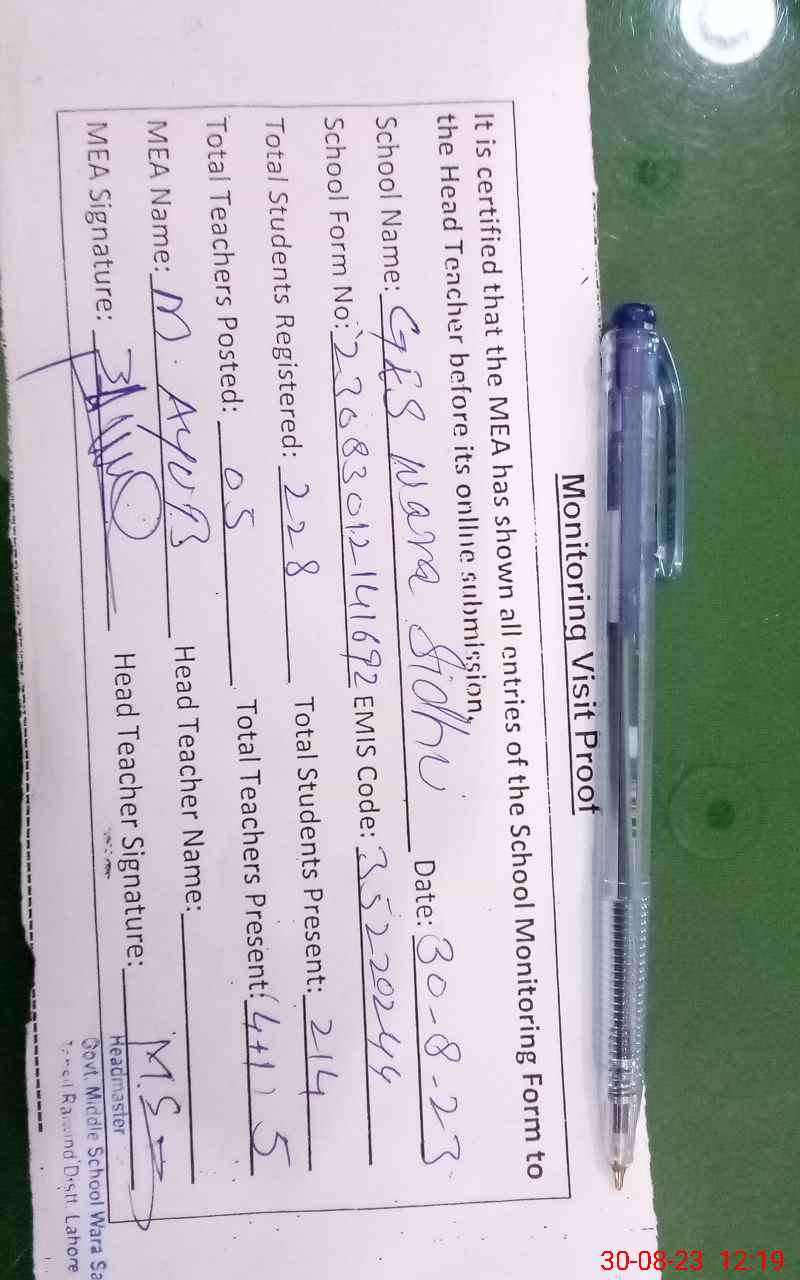 Monitoring Visit Proof
It is certified that the MEA has shown all entries of the School Monitoring Form to
the Head Teacher before its online submission.
School Name: GES Wara Sidhu Date: 30-8-23
School Form No: 23683012141692 EMIS Code: 35220244
Total Students Registered: 228 Total Students Present: 214
Total Teachers Posted: 05 Total Teachers Present: (4+1) 5
MEA Name: M. AYUB Head Teacher Name:
MEA Signature: Head Teacher Signature:
Headmaster
Govt. Middle School Wara Sa
Tehsil Raiwind Distt. Lahore
30-08-23 12:19